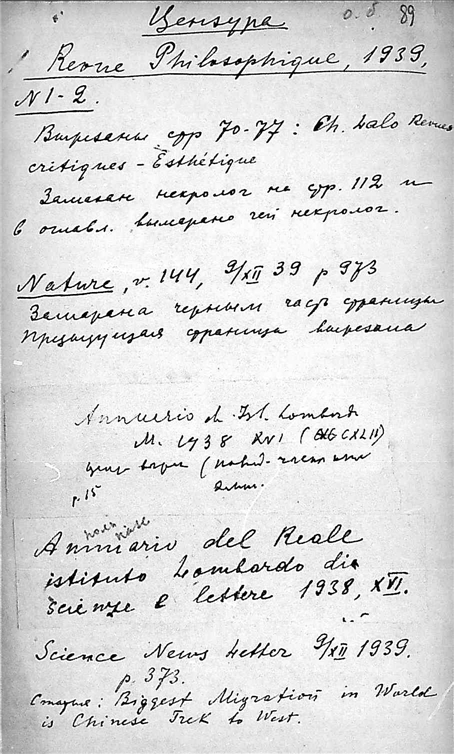 Цензура
о. б. 89
Revue Philosophique, 1939,
N 1-2.
Вырезаны стр 70-77: Ch. Lalo Revues
critiques - Esthétique
Замазан некролог на стр. 112 и
в оглавл. вымарано чей некролог.
Nature, v. 144, 9/XII 39 p 973
Замарана черным часть страницы
Предыдущая страница вырезана
Annuario d. Ist. Lombardo
M. 1938 XVI (
p. 15
Annuario del Reale
istituto Lombardo di
scienze e lettere 1938, XVI.
Science News Letter 9/XII 1939.
p. 373.
Статья: Biggest Migration in World
is Chinese Trek to West.